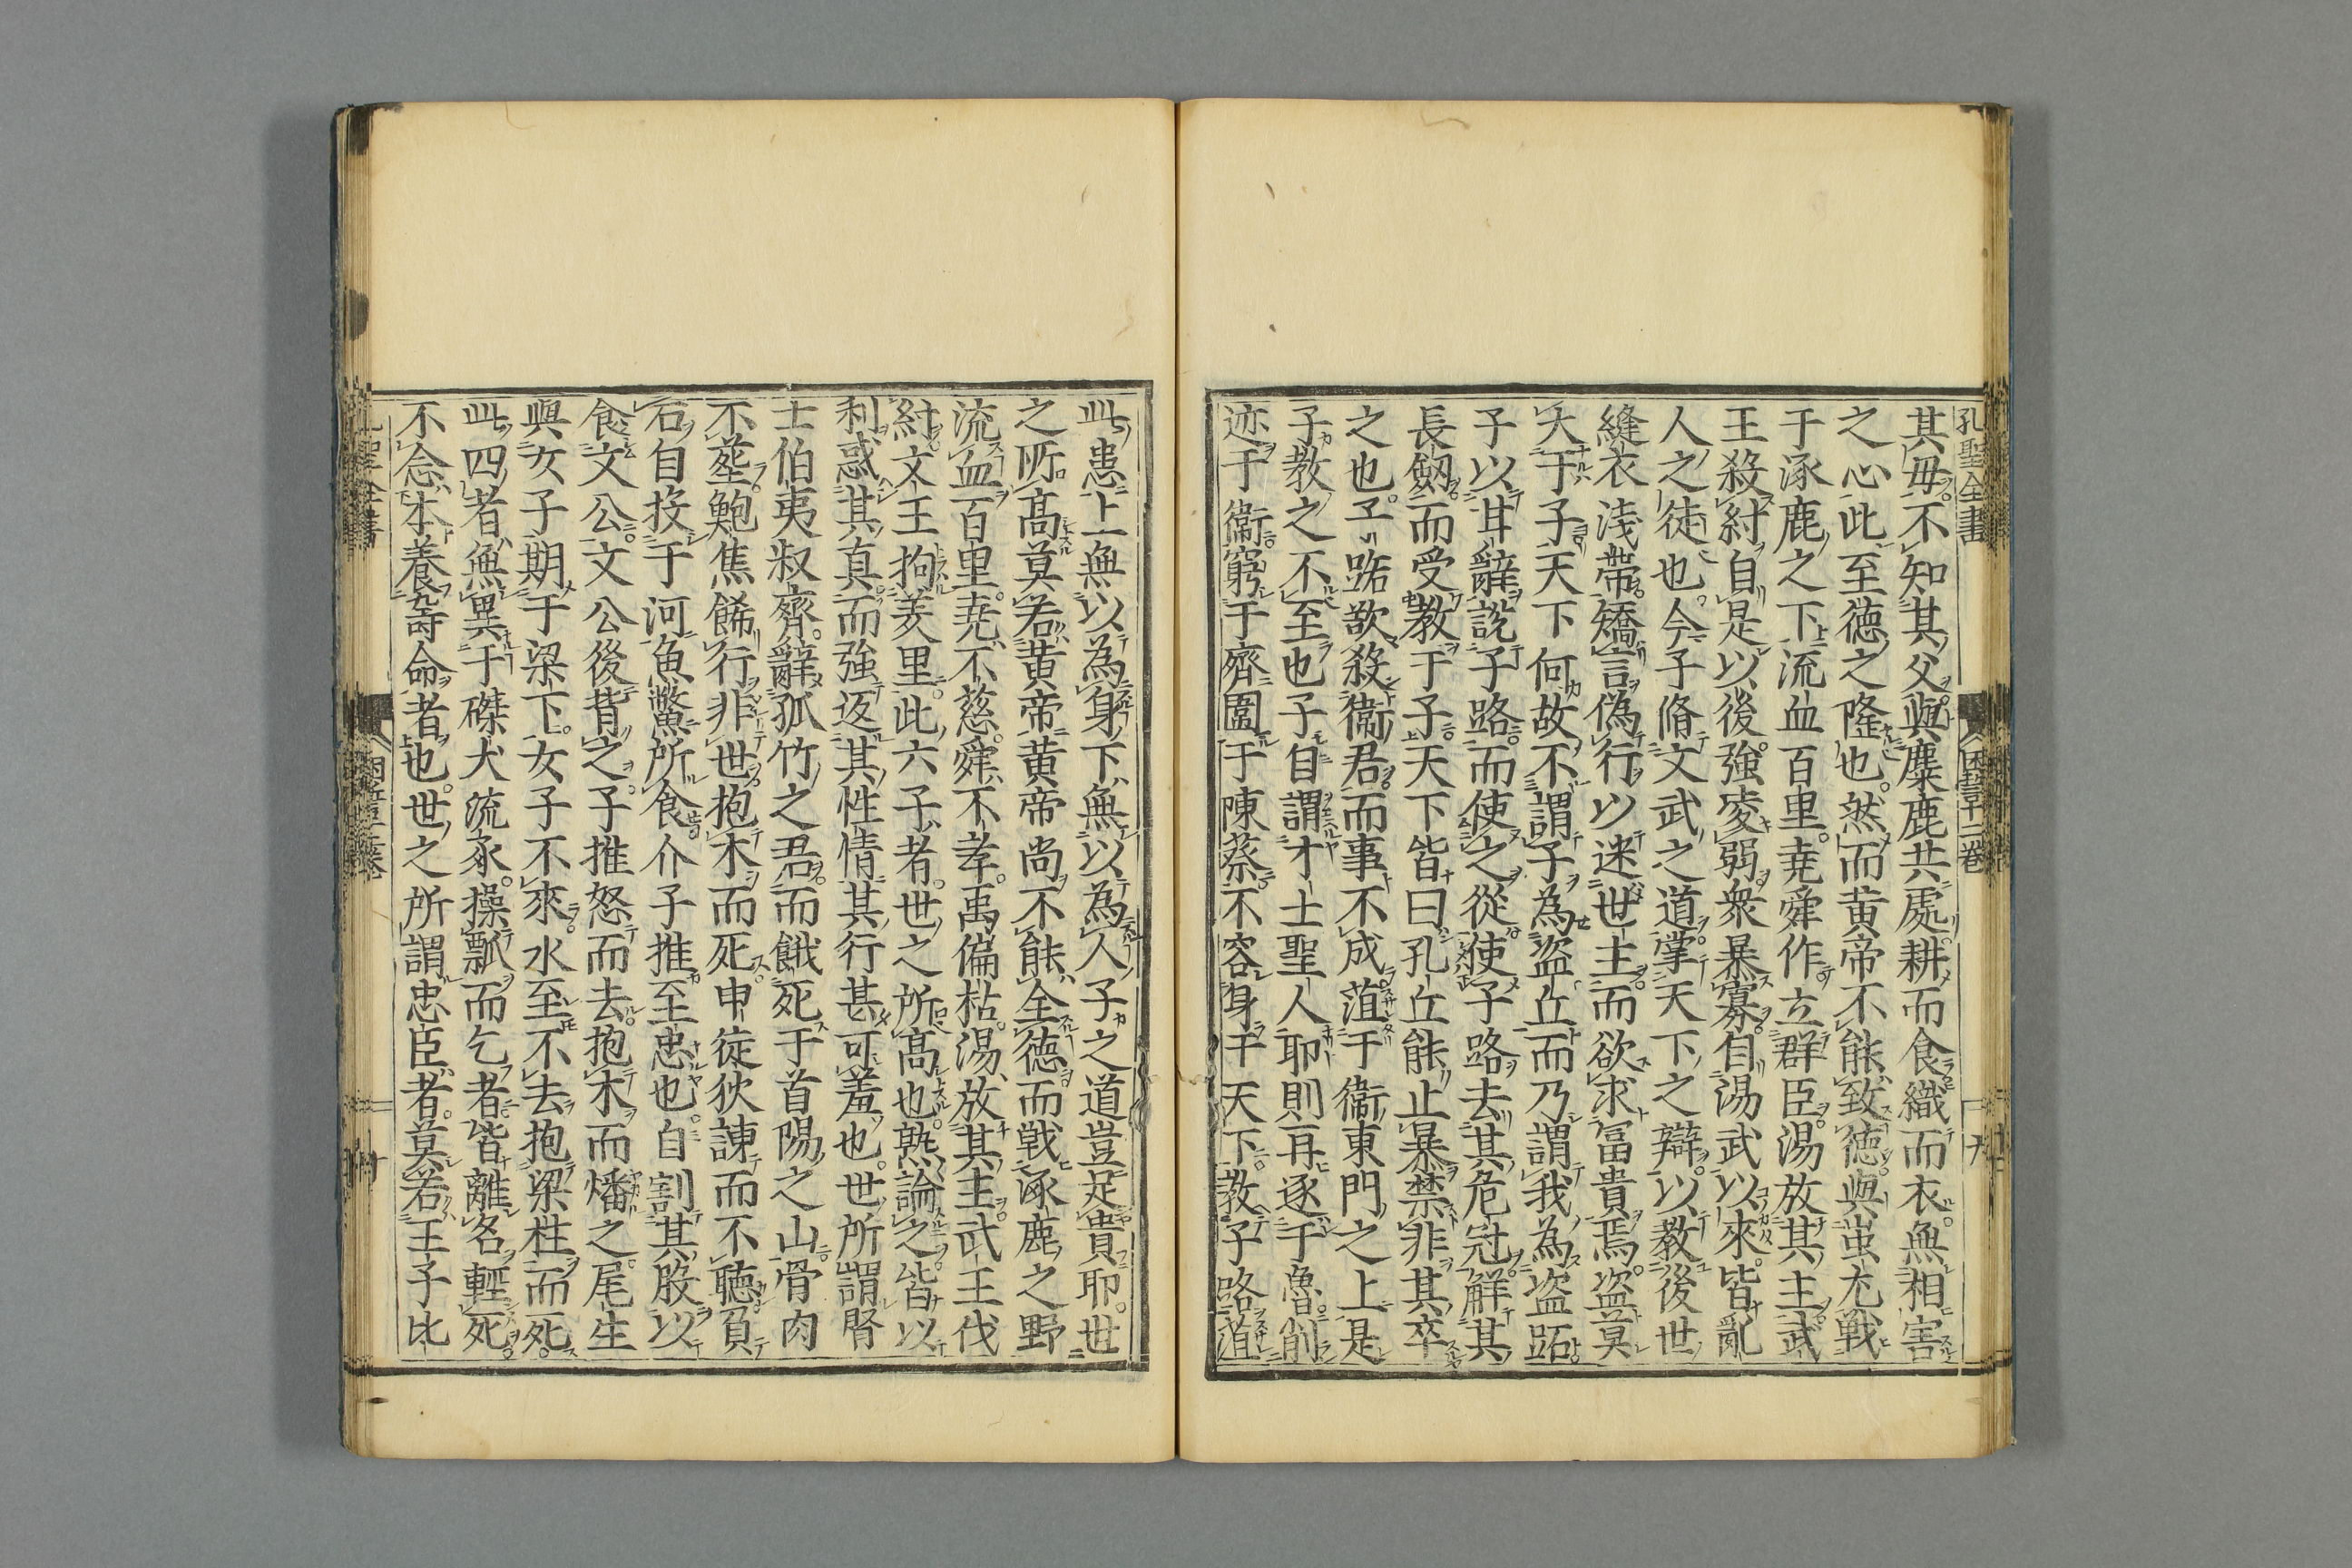 孔聖全書
其毋不知其父與麋鹿共處耕而食織而衣無相害
之心此至德之隆也然而黃帝不能致德與蚩尤戰
于涿鹿之下流血百里堯舜作立群臣湯放其主武
王殺紂自是以後強凌弱衆暴寡自湯武以來皆亂
人之徒也今子脩文武之道掌天下之辯以教後世
縫衣淺帶矯言偽行以迷世主而欲求冨貴焉盗莫
大于子天下何故不謂子為盗丘而乃謂我為盗跖
子以甘辭說子路而使之從使子路去其危冠解其
長劔而受教于子天下皆曰孔丘能止暴禁非其卒
之也子路欲殺衞君而事不成菹于衞東門之上是
子教之不至也子自謂才士聖人耶則再逐于魯削
迹于衞窮于齊圍于陳蔡不容身于天下教子路菹
此患上無以為身下無以為人子之道豈足貴耶世
之所髙莫若黃帝黃帝尚不能全德而戰涿鹿之野
流血百里堯不慈舜不孝禹偏枯湯放其主武王伐
紂文王拘羑里此六子者世之所髙也熟論之皆以
利惑其真而強返其性情其行甚可羞也世所謂賢
士伯夷叔齊辭孤竹之君而餓死于首陽之山骨肉
不葬鮑焦餙行非世抱木而死申徒狄諌而不聴負
石自投于河魚鱉所食介子推至忠也自割其股以
食文公文公後背之子推怒而去抱木而燔之尾生
與女子期于梁下女子不來水至不去抱梁柱而死
此四者無異于磔犬流豕操瓢而乞者皆離名輕死
不念本養壽命者也世之所謂忠臣者莫若王子比